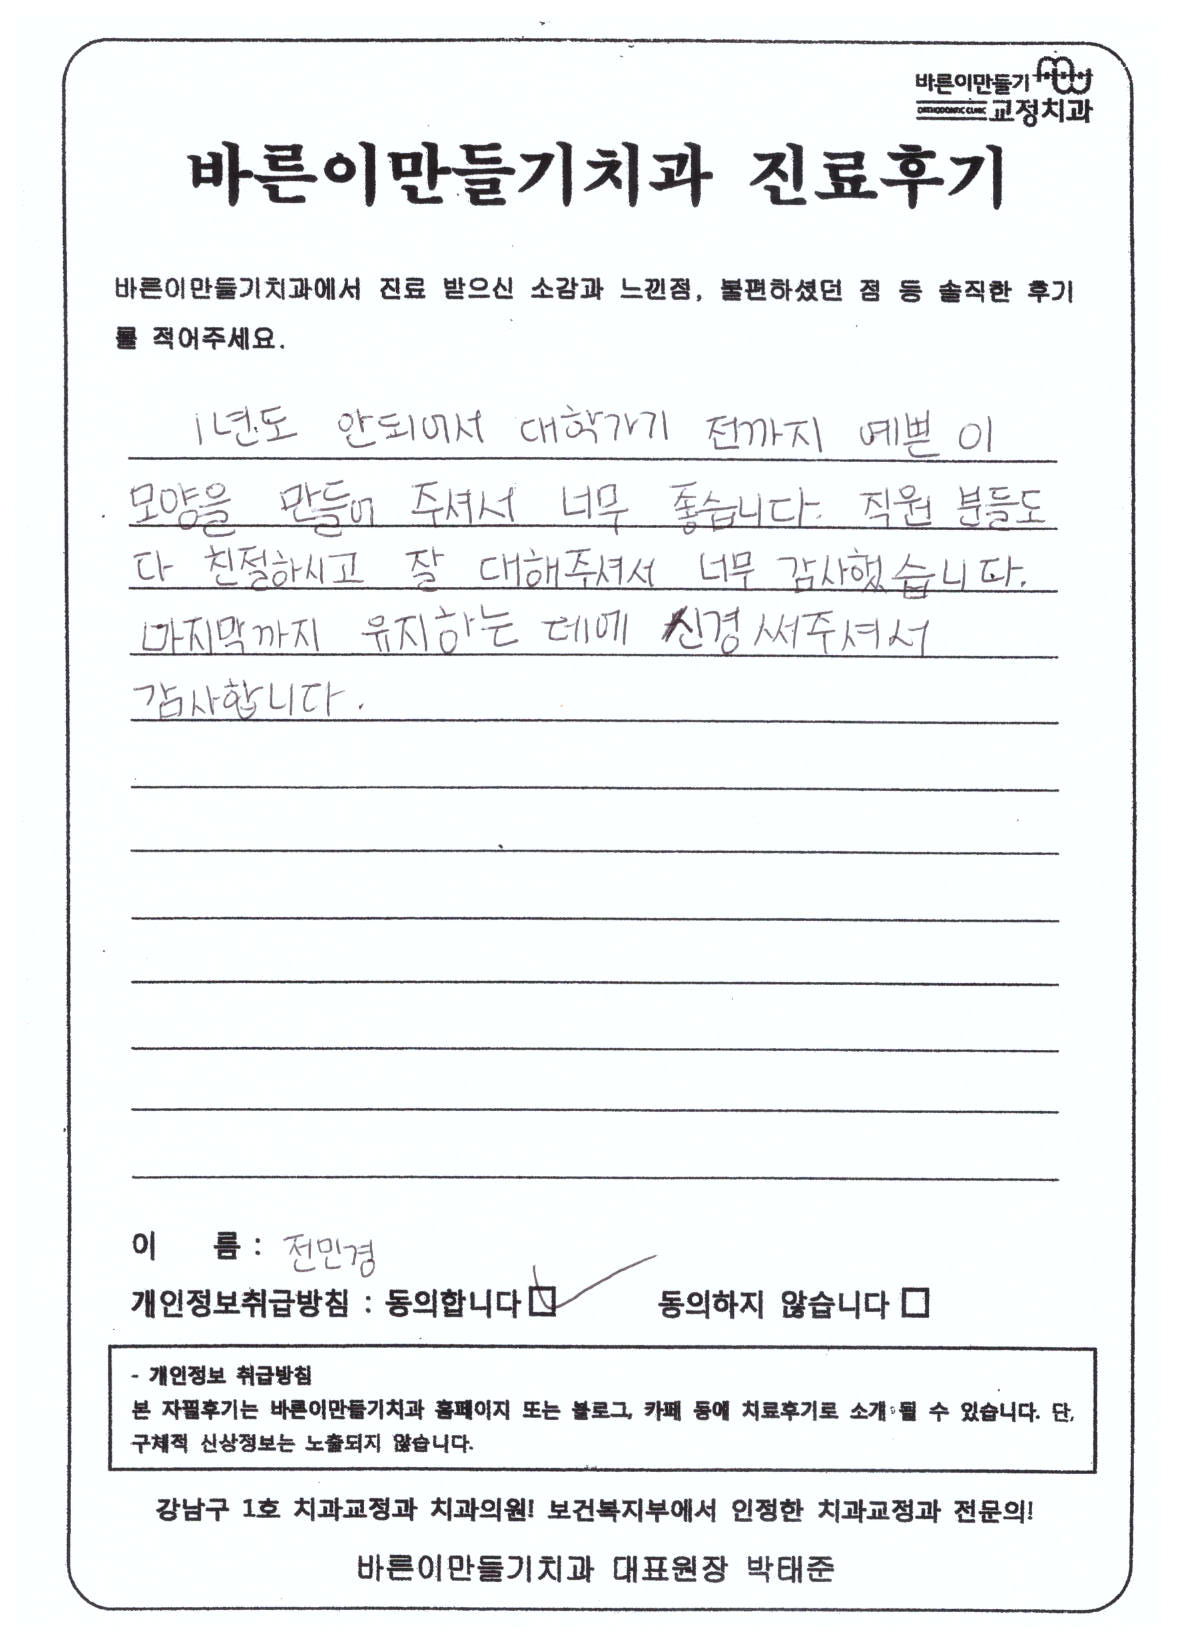 바른이만들기
ORTHODONTIC CLINIC 교정치과
바른이만들기치과 진료후기
바른이만들기치과에서 진료 받으신 소감과 느낀점, 불편하셨던 점 등 솔직한 후기
를 적어주세요.
1년도 안되어서 대학가기 전까지 예쁜 이
모양을 만들어 주셔서 너무 좋습니다. 직원 분들도
다 친절하시고 잘 대해주셔서 너무 감사했습니다.
마지막까지 유지하는 데에 신경써주셔서
감사합니다.
이 름 : 전민경
개인정보취급방침 : 동의합니다 동의하지 않습니다
- 개인정보 취급방침
본 자필후기는 바른이만들기치과 홈페이지 또는 블로그, 카페 등에 치료후기로 소개 될 수 있습니다. 단,
구체적 신상정보는 노출되지 않습니다.
강남구 1호 치과교정과 치과의원! 보건복지부에서 인정한 치과교정과 전문의!
바른이만들기치과 대표원장 박태준